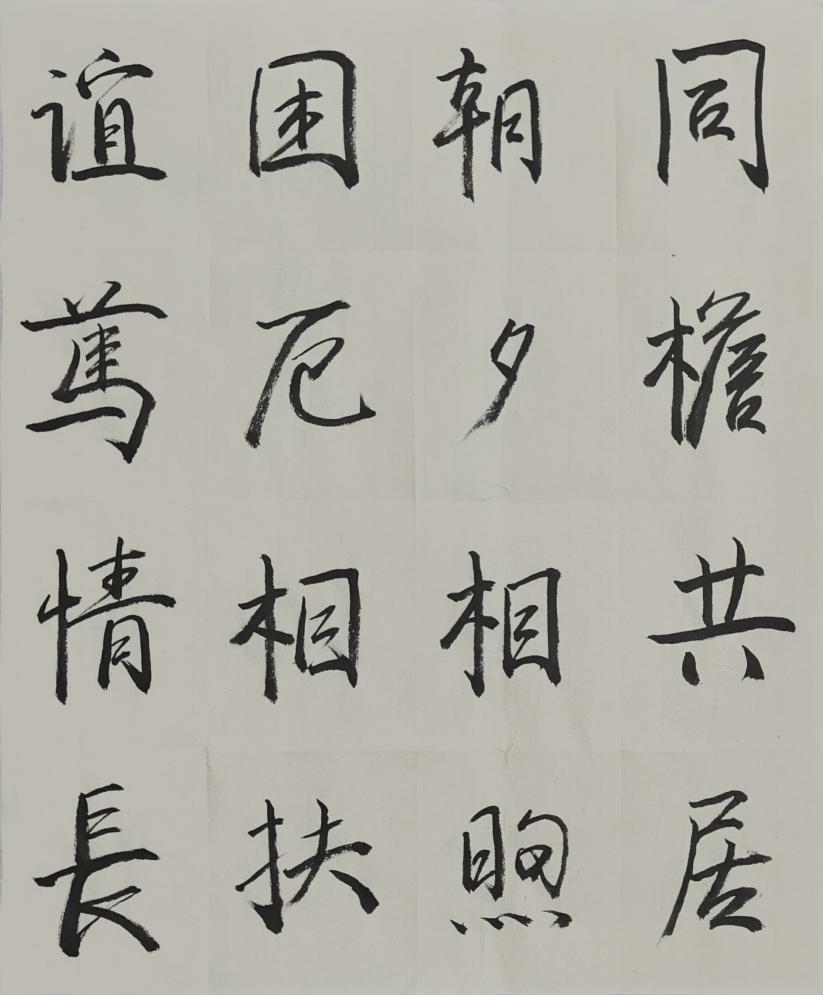 同檐共居
朝夕相煦
困厄相扶
谊篤情長